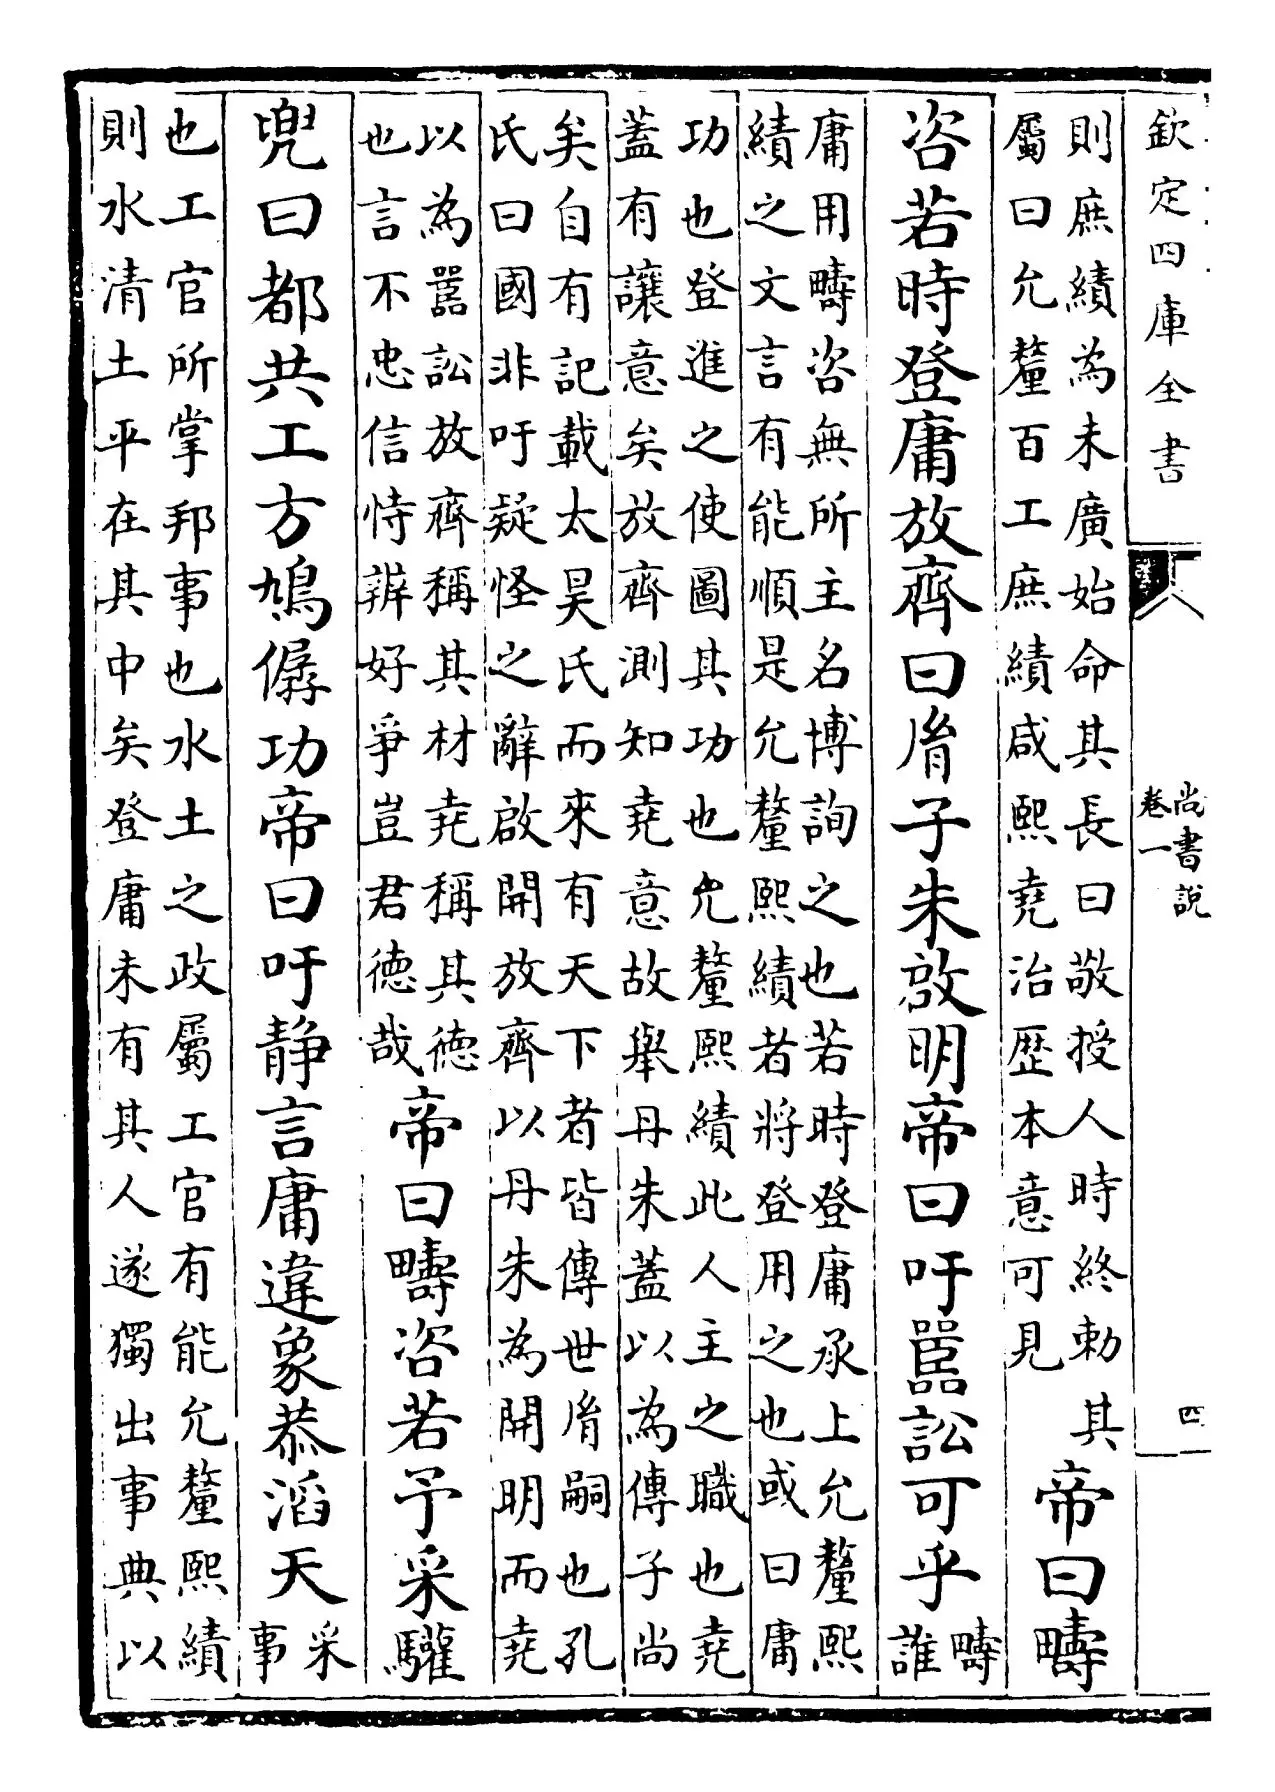 欽定四庫全書
尚書說
卷一
四
則庶績為未廣始命其長曰敬授人時終勅其
屬曰允釐百工庶績咸熙堯治歴本意可見
帝曰疇
咨若時登庸放齊曰胤子朱啟明帝曰吁嚚訟可乎
疇
誰
庸用疇咨無所主名博詢之也若時登庸承上允釐熙
績之文言有能順是允釐熙績者將登用之也或曰庸
功也登進之使圖其功也允釐熙績此人主之職也堯
蓋有讓意矣放齊測知堯意故舉丹朱蓋以為傳子尚
矣自有記載太昊氏而來有天下者皆傳世胤嗣也孔
氏曰國非吁疑怪之辭啟開放齊以丹朱為開明而堯
以為嚚訟放齊稱其材堯稱其徳
也言不忠信恃辨好爭豈君徳哉
帝曰疇咨若予采驩
兜曰都共工方鳩僝功帝曰吁静言庸違象恭滔天
采
事
也工官所掌邦事也水土之政屬工官有能允釐熙績
則水清土平在其中矣登庸未有其人遂獨出事典以